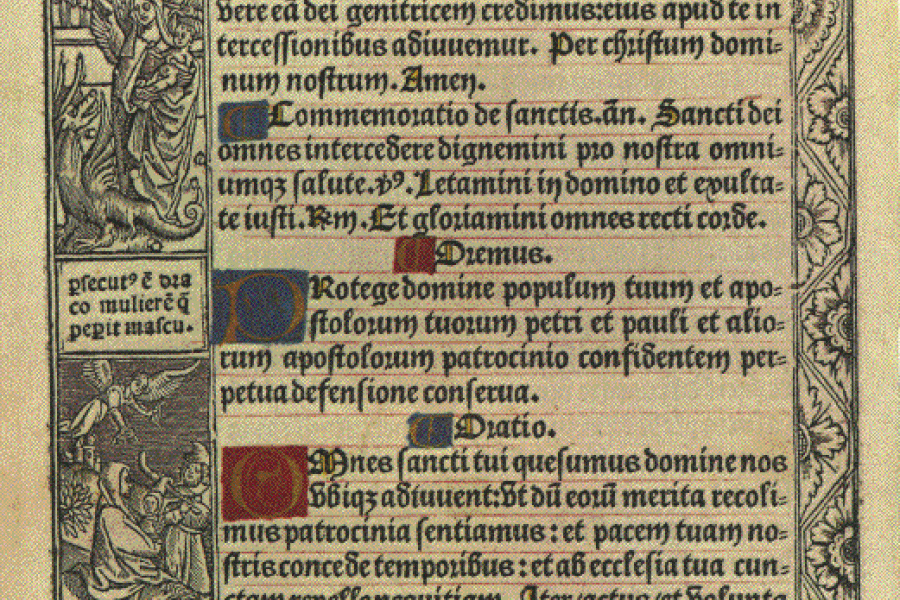 vere eā dei genitricem credimus:eius apud te in
tercessionibus adiuuemur. Per christum domi=
num nostrum. Amen.
Commemoratio de sanctis.añ. Sancti dei
omnes intercedere dignemini pro nostra omni=
umqꝫ salute.℣. Letamini in domino et exulta=
te iusti.Rm. Et gloriamini omnes recti corde.
Oremus.
PRotege domine populum tuum et apo=
stolorum tuorum petri et pauli et alio=
rum apostolorum patrocinio confidentem per=
petua defensione conserua.
Oratio.
OMnes sancti tui quesumus domine nos
vbiqꝫ adiuuent:Vt dū eorū merita recoli=
mus patrocinia sentiamus: et pacem tuam no=
stris concede temporibus: et ab ecclesia tua cun=
ctam repelle nequitiam. Iter/actus/et volunta
ꝑsecutꝰ ē dra
co mulierē q̄
peꝑit mascu.